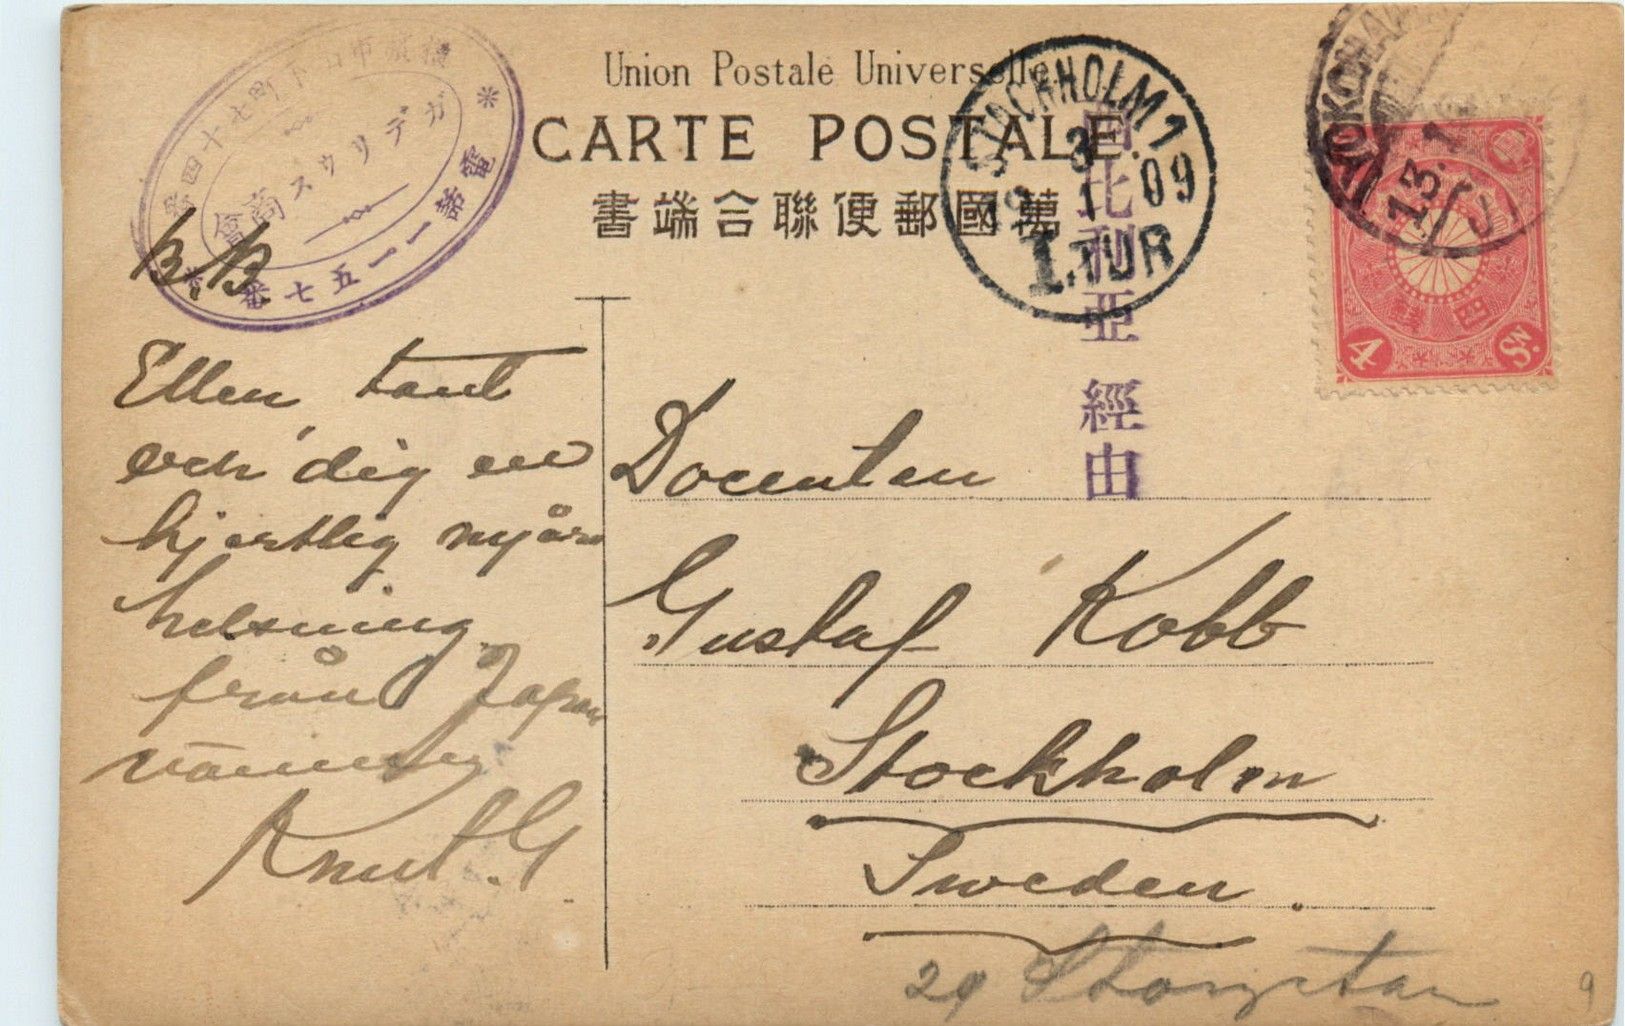 Union Postale Universelle.
CARTE POSTALE.
萬國郵便聯合端書
横濱市山下町七十四番
ガデリウス商會
電話一一五七番
STOCKHOLM 1
3 1 09
1. TUR
西比利亜 經由
YOKOHAMA
13.1
4 Sn.
B.B.
Ellen, tant
och dig en
hjertlig nyårs
helsning
från Japan
Knut G.
Docenten
Gustaf Kobb
Stockholm
Sweden.
29
9